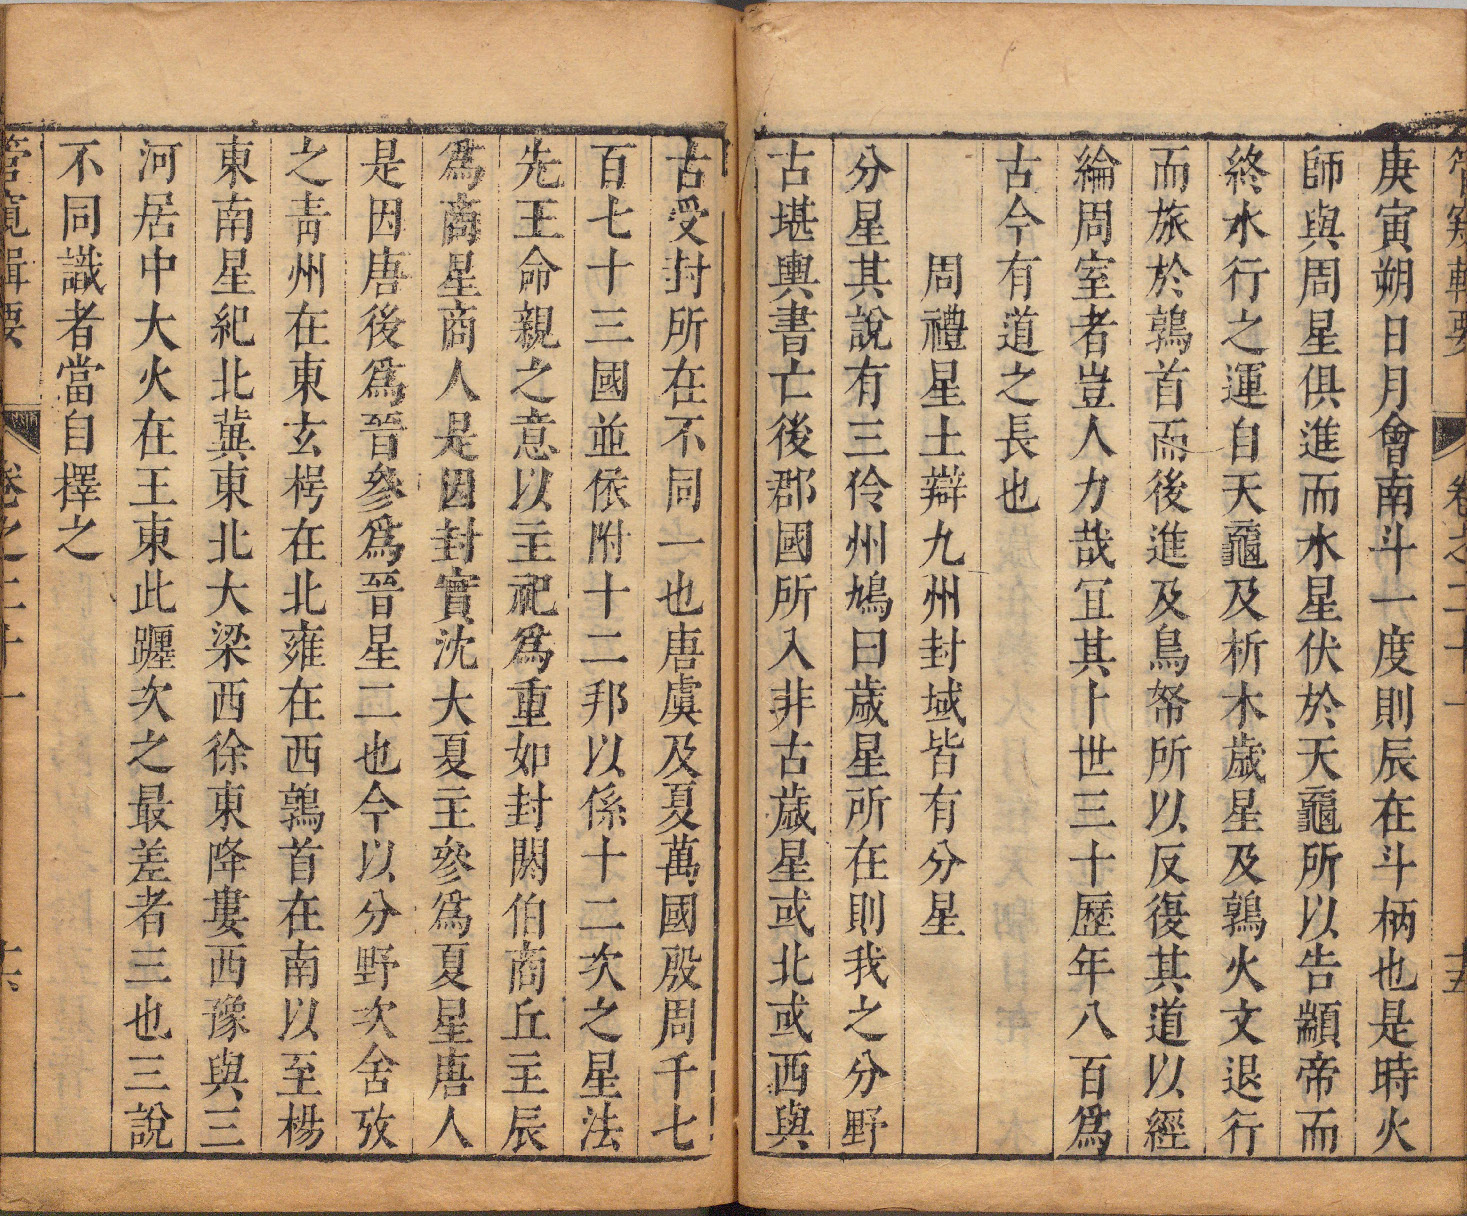 管窺輯要 卷之二十一 十五
庚寅朔日月會南斗一度則辰在斗柄也是時火
師與周星俱進而水星伏於天黿所以告顓帝而
終水行之運自天黿及析木歲星及鶉火文退行
而旅於鶉首而後進及鳥帑所以反復其道以經
綸周室者豈人力哉宜其卜世三十歷年八百爲
古今有道之長也
周禮星土辯九州封域皆有分星
分星其說有三伶州鳩曰歲星所在則我之分野
古堪輿書亡後郡國所入非古歲星或北或西與
古受封所在不同一也唐虞及夏萬國殷周千七
百七十三國並依附十二邦以係十二次之星法
先王命親之意以主祀爲重如封閼伯商丘主辰
爲商星商人是因封實沈大夏主參爲夏星唐人
是因唐後爲晉參爲晉星二也今以分野次舍攷
之靑州在東玄枵在北雍在西鶉首在南以至楊
東南星紀北冀東北大梁西徐東降婁西豫與三
河居中大火在王東此躔次之最差者三也三說
不同識者當自擇之
管窺輯要 卷之二十一 十六